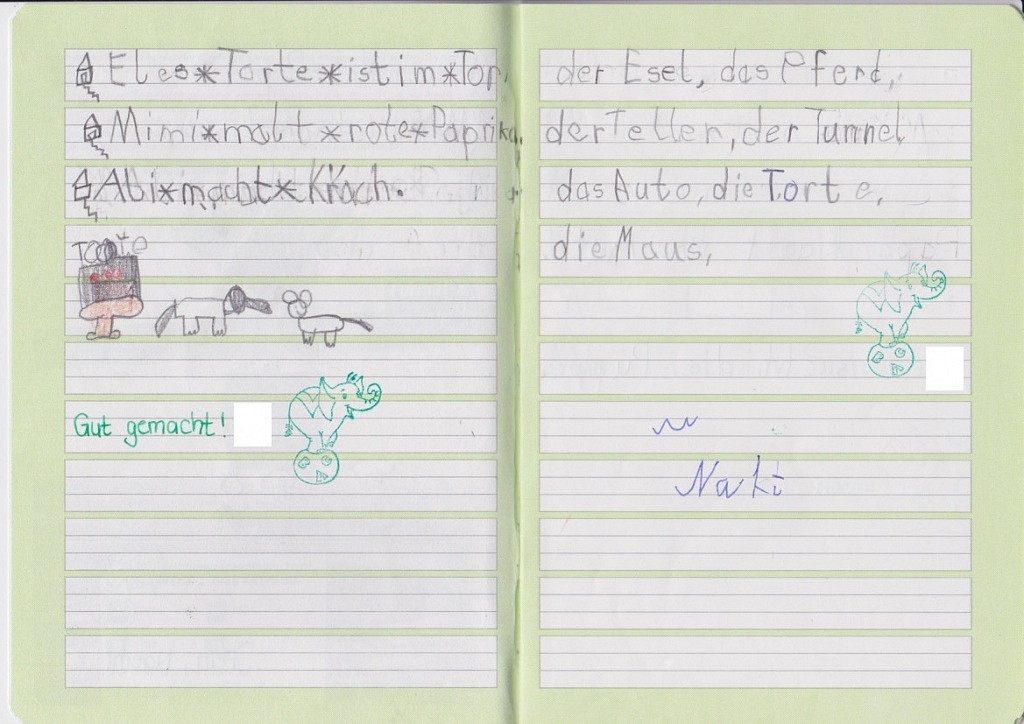 Eles*Torte*ist im*Tor.
Mimi*malt*rote*Paprika.
Ali*macht*Krach.
Torte
Gut gemacht!
der Esel, das Pferd,
der Teller, der Tunnel
das Auto, die Torte,
die Maus,
Naki